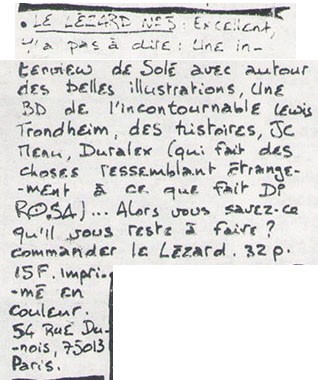 . LE LÉZARD N°3 : Excellent,
Y'a pas à dire : Une in-
terview de Solé avec autour
des belles illustrations, Une
BD de l'incontournable Lewis
Trondheim, des histoires, JC
Menu, Duralex (qui fait des
choses ressemblant étrange-
-ment à ce que fait Di
ROSA)... Alors vous savez-ce
qu'il vous reste à faire ?
commander le Lézard. 32 p.
15F. Impri-
-mé en
couleur.
54 Rue Du-
-nois, 75013
Paris.